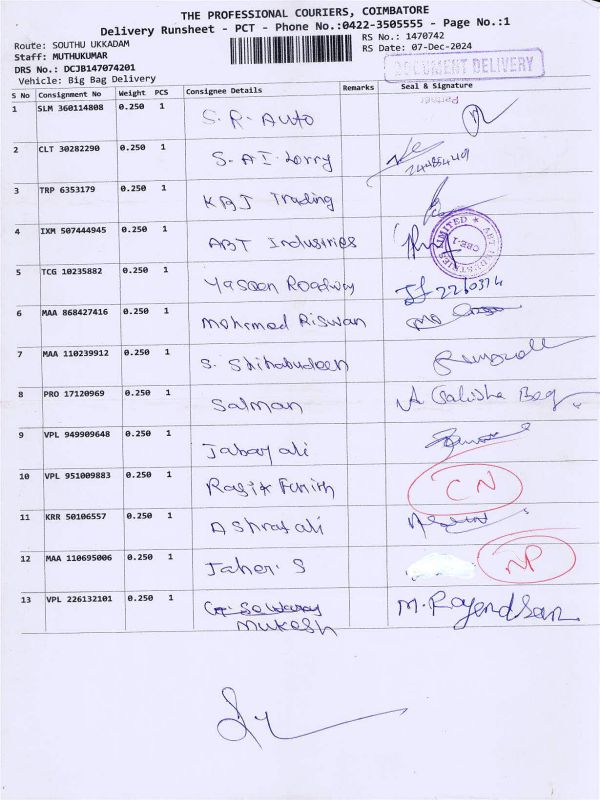 THE PROFESSIONAL COURIERS, COIMBATORE
Delivery Runsheet - PCT - Phone No.:0422-3505555 - Page No.:1
Route: SOUTHU UKKADAM
RS No.: 1470742
Staff: MUTHUKUMAR
RS Date: 07-Dec-2024
DRS No.: DCJB147074201
DOCUMENT DELIVERY
Vehicle: Big Bag Delivery
S No Consignment No Weight PCS Consignee Details Remarks Seal & Signature
Partner
1 SLM 360114808 0.250 1 S.R. Auto
2 CLT 30282290 0.250 1 S.A.I. Lorry
3 TRP 6353179 0.250 1 KBJ Trading
4 IXM 507444945 0.250 1 ABT Industries ABT INDUSTRIES LIMITED CBE-1
5 TCG 10235882 0.250 1 Yaseen Roadway 2260374
6 MAA 868427416 0.250 1 Mohamed Riswan
7 MAA 110239912 0.250 1 S. Shihabudeen
8 PRO 17120969 0.250 1 Salman
9 VPL 949909648 0.250 1 Jabar ali
10 VPL 951009883 0.250 1 CN
11 KRR 50106557 0.250 1 Ashraf ali
12 MAA 110695006 0.250 1 Jaher. S NP
13 VPL 226132101 0.250 1 M. Rajendran
Mukesh